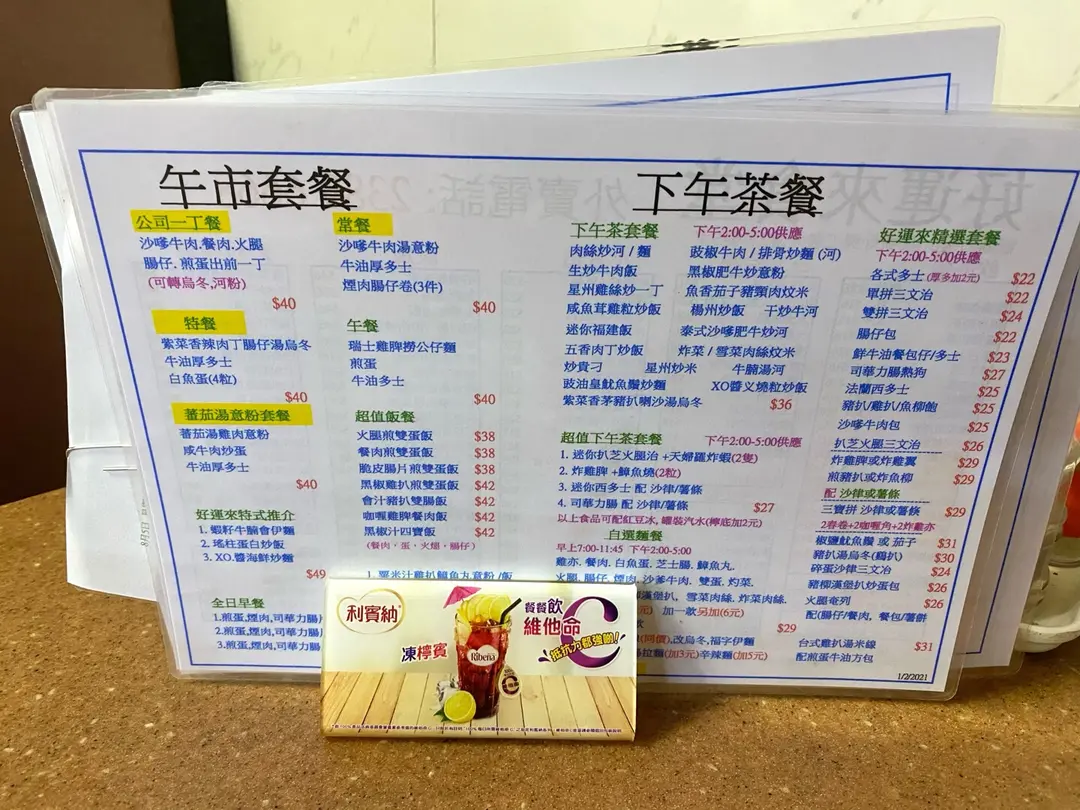 午市套餐
公司一丁餐
沙嗲牛肉.餐肉.火腿
腸仔.煎蛋出前一丁
(可轉烏冬,河粉)
$40
特餐
紫菜香辣肉丁腸仔湯烏冬
牛油厚多士
白魚蛋(4粒)
$40
蕃茄湯意粉套餐
蕃茄湯雞肉意粉
咸牛肉炒蛋
牛油厚多士
$40
好運來特式推介
1. 蝦籽牛腩會伊麵
2. 瑤柱蛋白炒飯
3. XO.醬海鮮炒麵
$49
全日早餐
1.煎蛋,煙肉,司華力腸
2.煎蛋,煙肉,司華力腸
3.煎蛋,煙肉,司華力腸
常餐
沙嗲牛肉湯意粉
牛油厚多士
煙肉腸仔卷(3件)
$40
午餐
瑞士雞脾撈公仔麵
煎蛋
牛油多士
$40
超值飯餐
火腿煎雙蛋飯 $38
餐肉煎雙蛋飯 $38
脆皮腸片煎雙蛋飯 $38
黑椒雞扒煎蛋飯 $42
會汁豬扒雙腸飯 $42
咖喱雞脾餐肉飯 $42
黑椒汁四寶飯 $42
(餐肉，蛋，火腿，腸仔)
1. 粟米汁雞扒鯪魚丸意粉/飯
下午茶餐
下午茶套餐 下午2:00-5:00供應
肉絲炒河 / 麵 豉椒牛肉 / 排骨炒麵 (河)
生炒牛肉飯 黑椒肥牛炒意粉
星州雞絲炒一丁 魚香茄子豬頸肉炆米
咸魚茸雞粒炒飯 楊州炒飯 干炒牛河
迷你福建飯 泰式沙嗲肥牛炒河
五香肉丁炒飯 炸菜 / 雪菜肉絲炆米
炒貴刁 星州炒米 牛腩湯河
豉油皇魷魚鬚炒麵 XO醬义燒粒炒飯
紫菜香茅豬扒喇沙湯烏冬 $36
超值下午茶套餐 下午2:00-5:00供應
1. 迷你扒芝火腿治 +天婦羅炸蝦(2隻)
2. 炸雞脾 +鱆魚燒(2粒)
3. 迷你西多士 配 沙律/薯條
4. 司華力腸 配 沙律/薯條 $27
以上食品可配紅豆冰, 罐裝汽水(檸底加2元)
自選麵餐
早上7:00-11:45 下午2:00-5:00
雞亦. 餐肉. 白魚蛋. 芝士腸. 鱆魚丸.
火腿. 腸仔. 煙肉. 沙爹牛肉. 雙蛋. 灼菜.
漢堡扒. 雪菜肉絲. 炸菜肉絲.
加一款另加(6元)
$29
(同價),改烏冬,福字伊麵
拉麵(加3元)辛辣麵(加5元)
好運來精選套餐
下午2:00-5:00供應
各式多士 (厚多加2元) $22
單拼三文治 $22
雙拼三文治 $24
腸仔包 $22
鮮牛油餐包仔/多士 $23
司華力腸熱狗 $27
法蘭西多士 $25
豬扒/雞扒/魚柳飽 $25
沙嗲牛肉包 $25
扒芝火腿三文治 $26
炸雞脾或炸雞翼 $29
煎豬扒或炸魚柳 $29
配 沙律或薯條
三寶拼 沙律或薯條 $29
2春卷+2咖喱角+2炸雞亦
椒鹽魷魚鬚 或 茄子 $31
豬扒湯烏冬(鷄扒) $30
碎蛋沙律三文治 $24
豬柳漢堡扒炒蛋包 $26
火腿奄列 $26
配(腸仔/餐肉, 餐包/薯餅
台式雞扒湯米線 $31
配煎蛋牛油方包
1/2/2021
利賓納
凍檸賓
Ribena
餐餐飲
維他命
C
抵抗力都強啲!